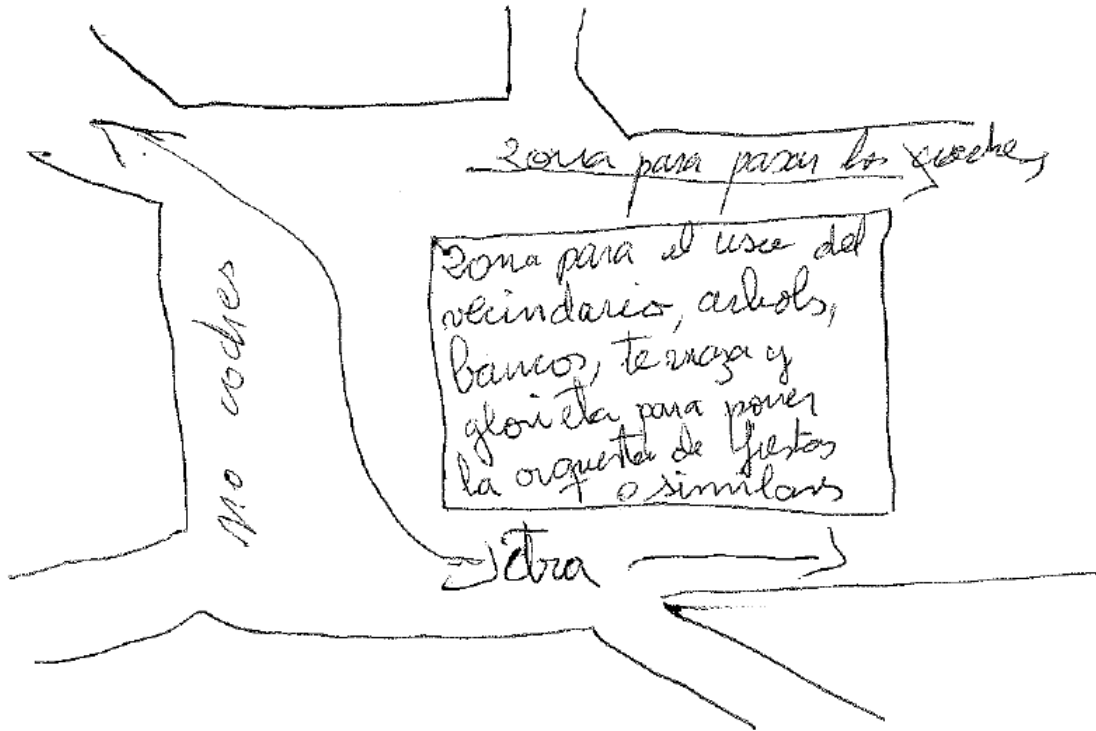 Zona para pasar los coches
Zona para el uso del
vecindario, arbols,
bancos, terraza y
glorieta para poner
la orquesta de fiestas
o similars
No coches